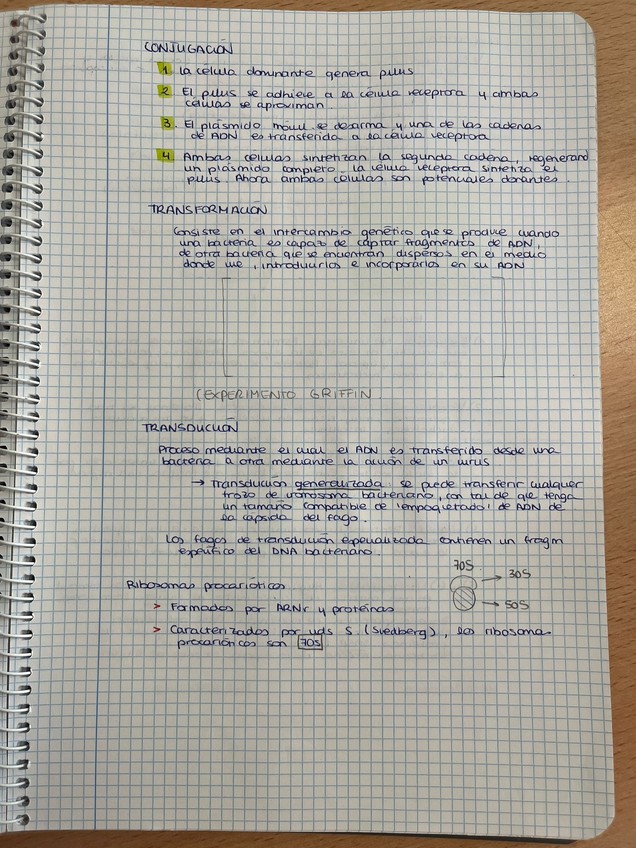 CONJUGACIÓN
1 La célula dominante genera pilus
2 El pilus se adhiere a la célula receptora y ambas
células se aproximan
3. El plásmido móvil se desarma y una de las cadenas
de ADN es transferida a la célula receptora
4 Ambas células sintetizan la segunda cadena, regenerand
un plásmido completo. La célula receptora sintetiza el
pilus. Ahora ambas células son potenciales donantes.
TRANSFORMACIÓN
Consiste en el intercambio genético que se produce cuando
una bacteria es capaz de captar fragmentos de ADN,
de otra bacteria que se encuentran dispersos en el medio
donde vive, introducirlos e incorporarlos en su ADN
(EXPERIMENTO GRIFFIN
TRANSDUCCIÓN
Proceso mediante el cual el ADN es transferido desde una
bacteria a otra mediante la acción de un virus
→ Transducción generalizada se puede transferir cualquier
trozo de cromosoma bacteriano, con tal de que tenga
un tamaño compatible de 'empaquetado' de ADN de
la cápsida del fago.
Los fagos de transducción especializada contienen un fragm
específico del DNA bacteriano.
Ribosomas procarióticos
70S
→ 30S
→ 50S
> Formados por ARNr y proteínas
> Caracterizados por uds S (Svedberg), los ribosoma
procarióticos son 70S